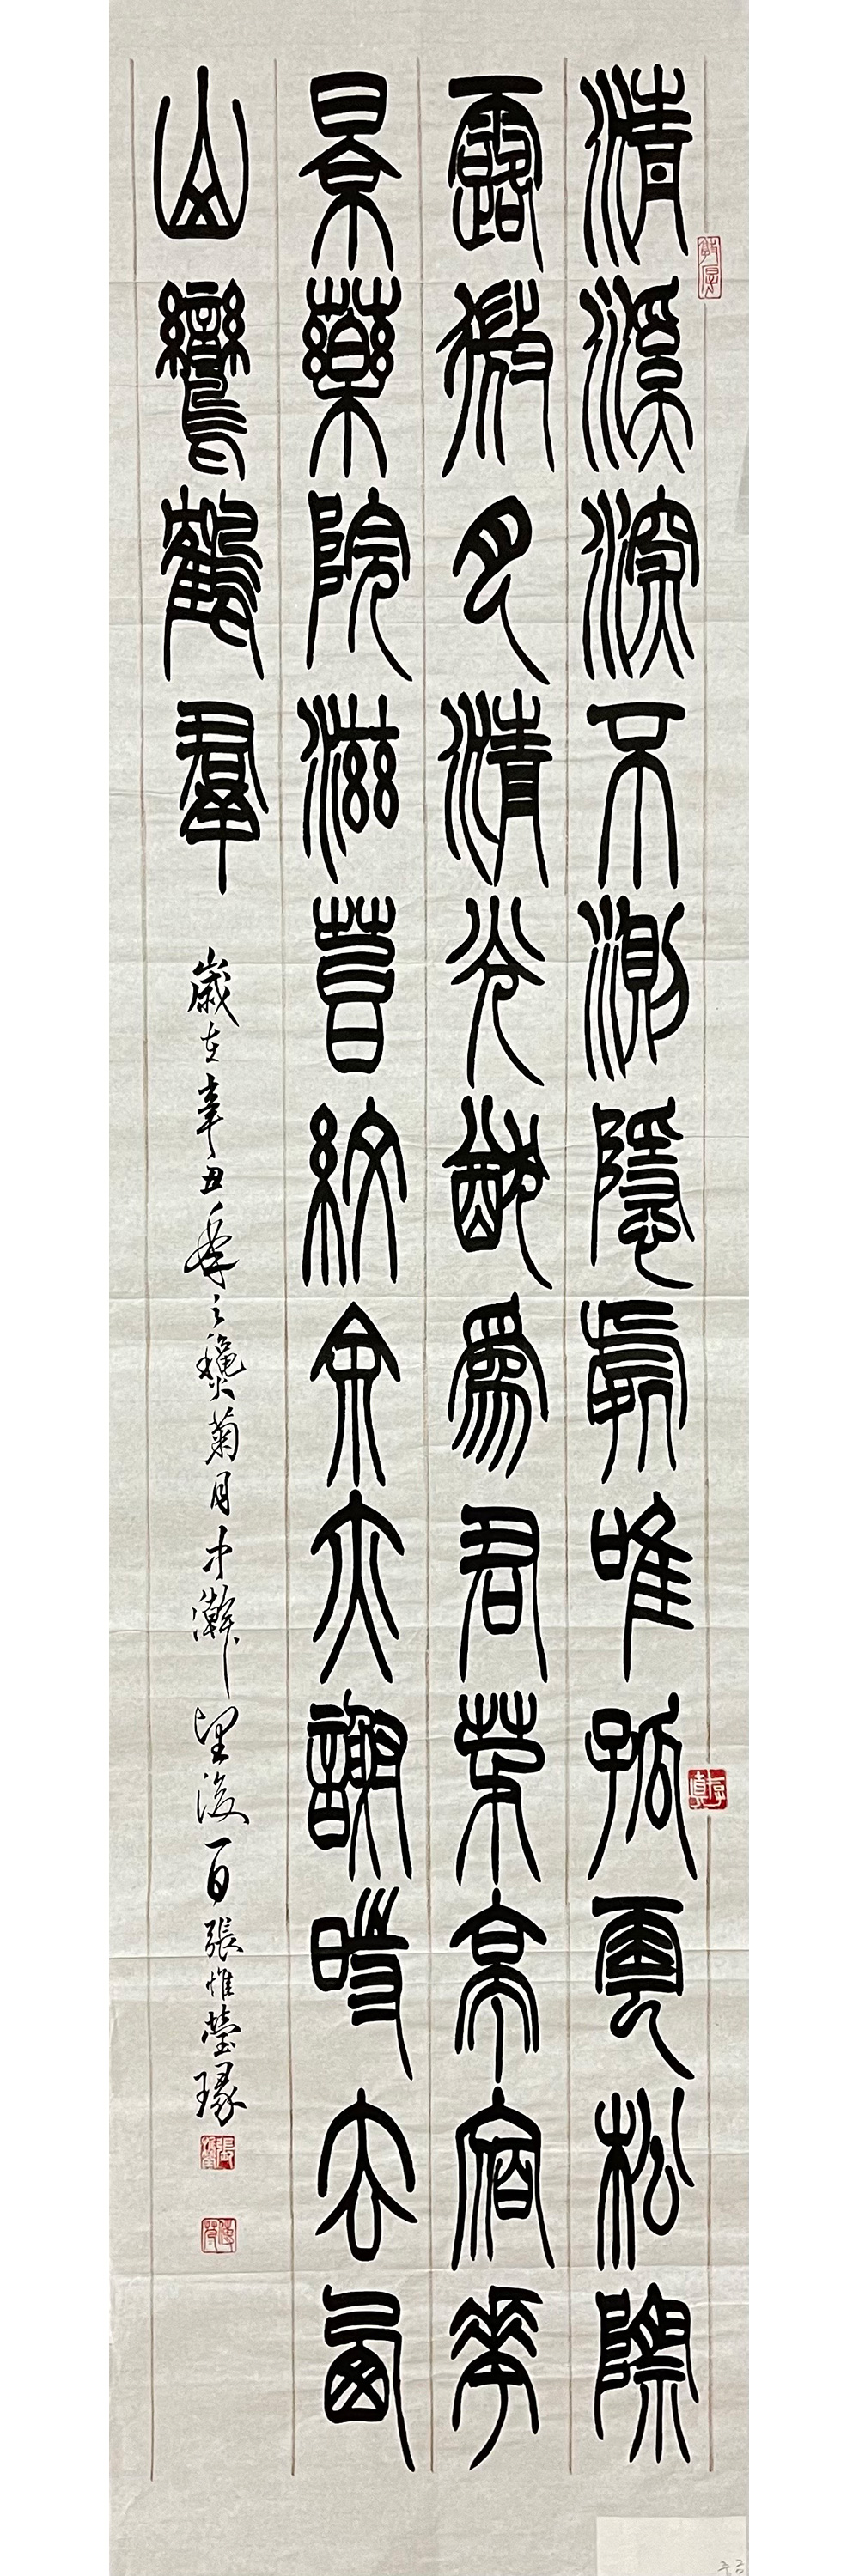 清溪深不測隱處唯孤雲松際
露微月清光猶爲君茅亭宿華
景藥院滋苔紋余亦謝時去西
山鸞鶴羣
歲在辛丑年之龝菊月中澣望後一日張惟瑩瑑